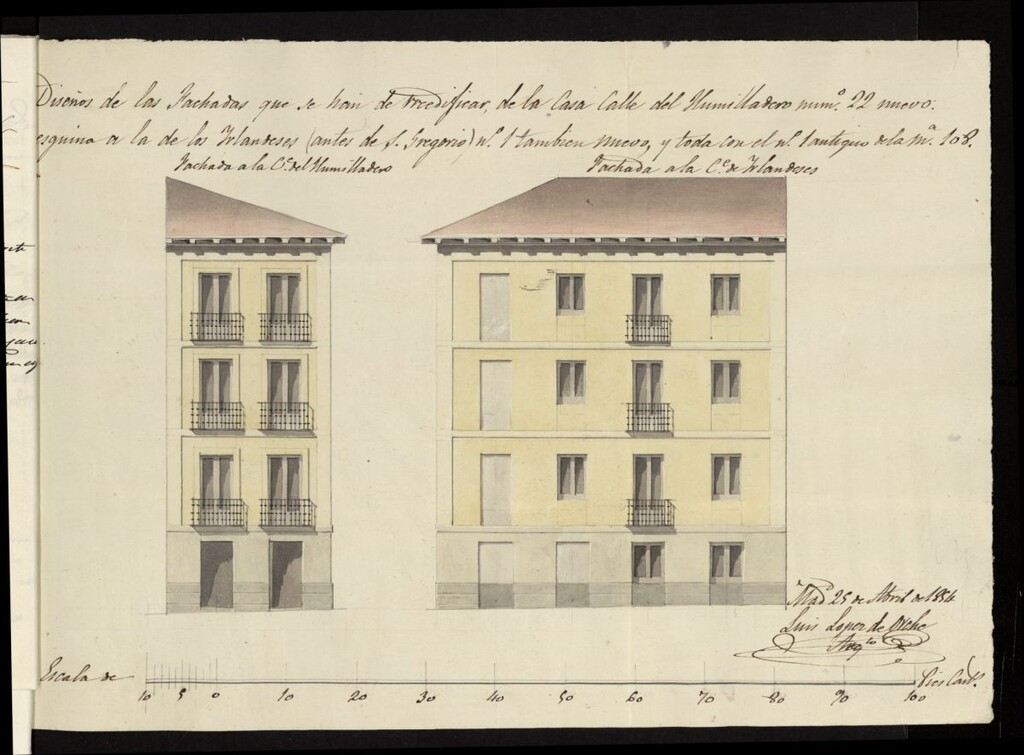 Diseños de las Fachadas que se han de Reedificar, de la Casa Calle del Humilladero num.º 22 nuevo.
esquina a la de los Irlandeses (antes de S. Gregorio) n.º 1 tambien nuevo, y toda con el n.º 1 antiguo de la m.ª 108.
Fachada a la C.e del Humilladero Fachada a la C.e de Irlandeses
Mad 25 de Abril de 1854
Luis Lopez de Orche
Arq.to
Escala de Pies Cast.s
10 5 0 10 20 30 40 50 60 70 80 90 100